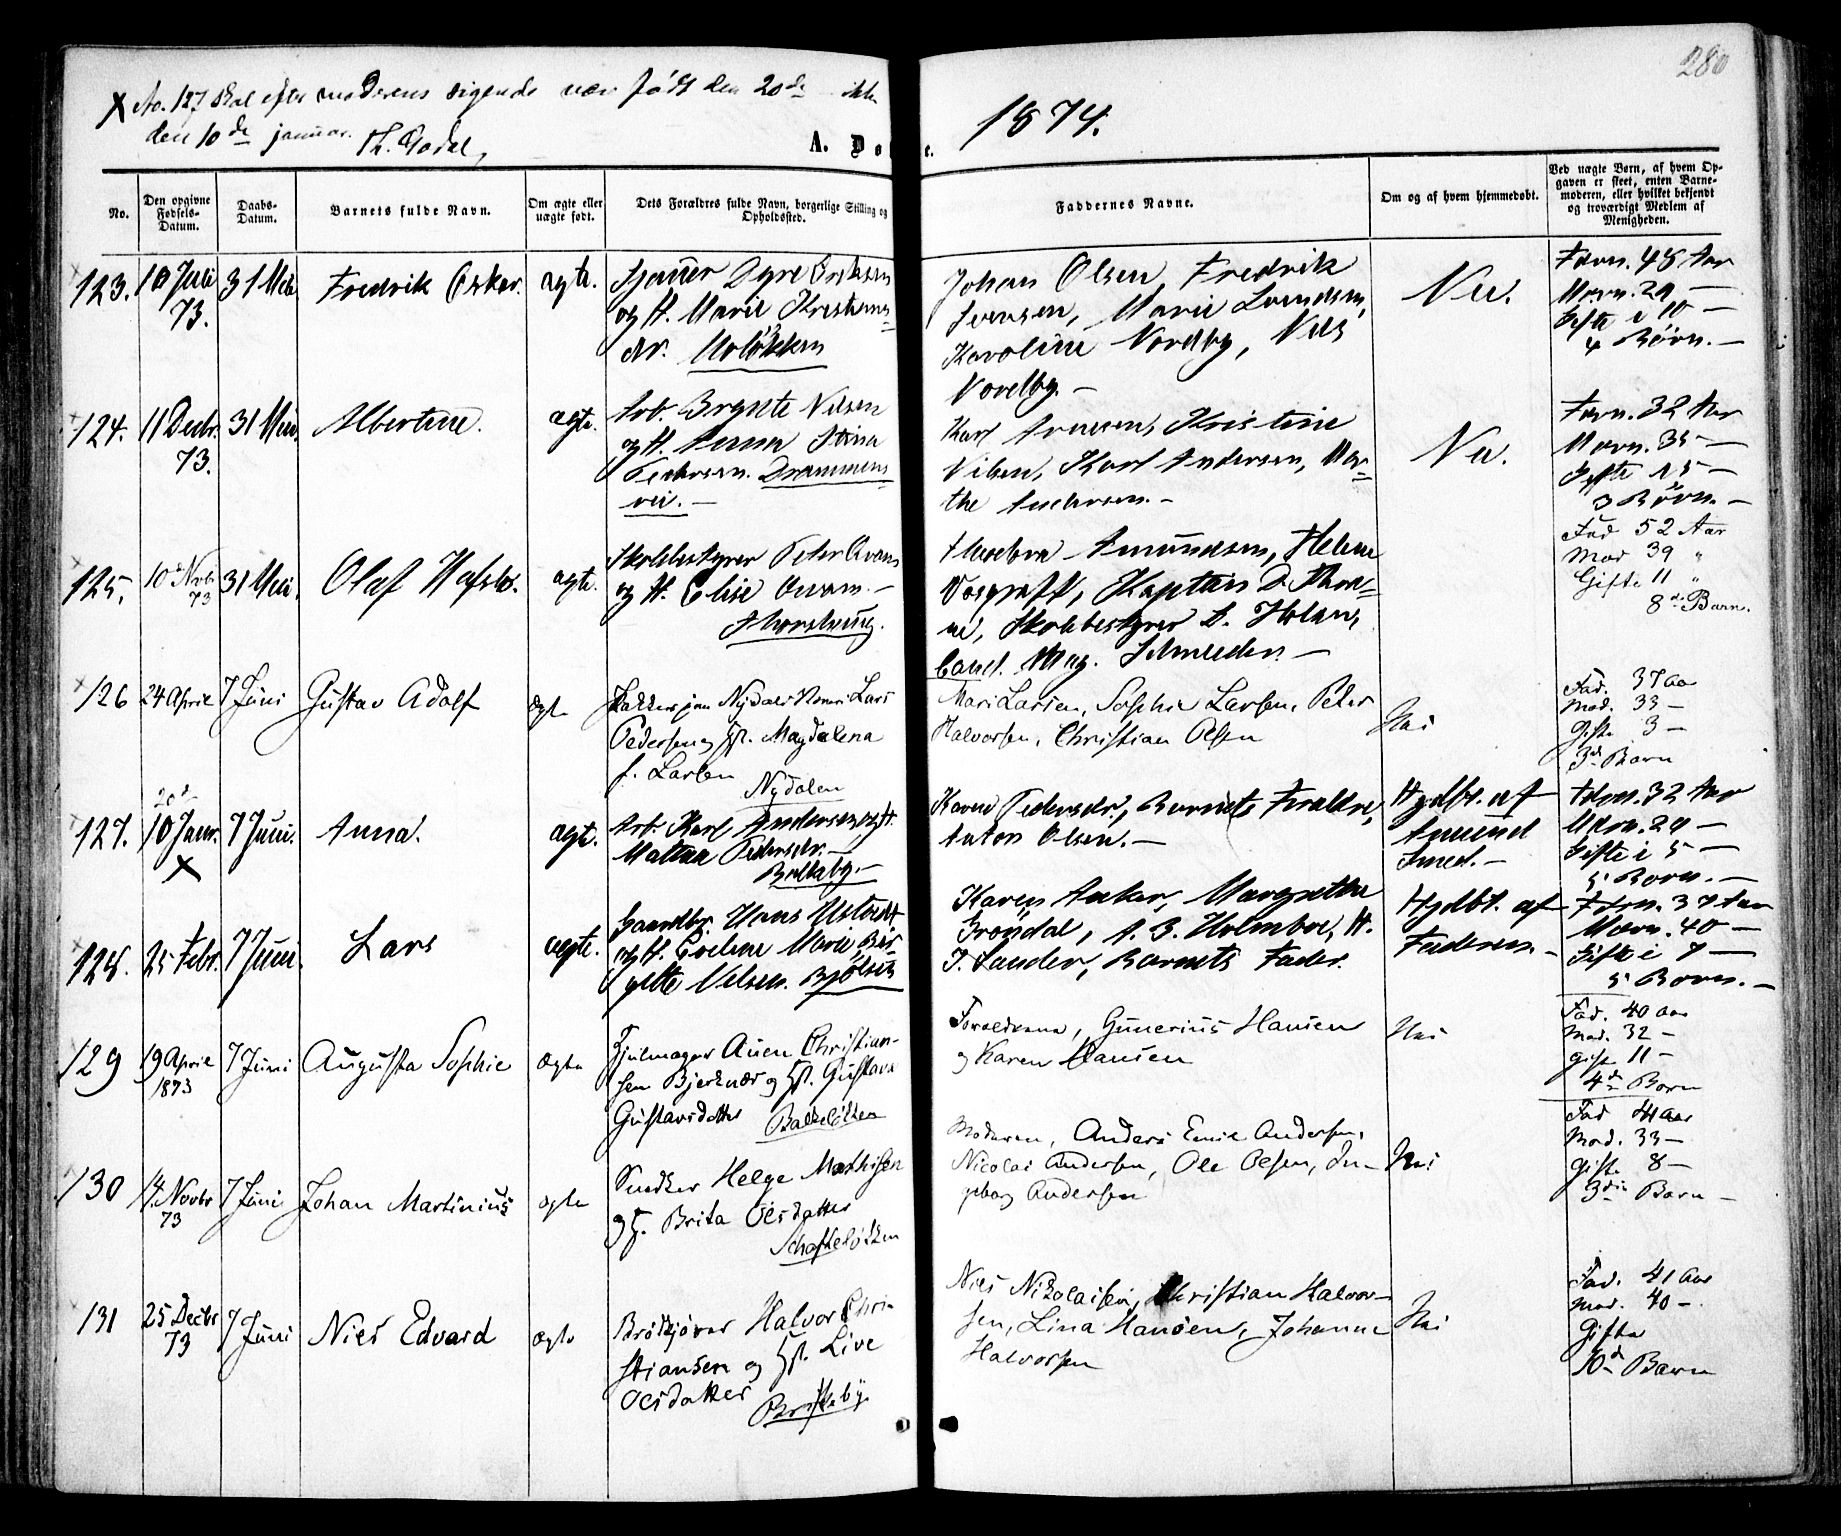 280
X No. 127 skal efter moderens sigende være født den 20de ikke
den 10de januar. Th. Godal,
1874.
A. Døbt.
No.
Den opgivne Fødsels-Datum.
Daabs-Datum.
Barnets fulde Navn.
Om ægte eller uægte født.
Dets Forældres fulde Navn, borgerlige Stilling og Opholdsted.
Faddernes Navne.
Om og af hvem hjemmedøbt.
Ved uægte Børn, af hvem Opgaven er skeet, enten Barnemoderen, eller hvilket bekjendt og troværdigt Medlem af Menigheden.
123. 10 Juli 73. 31 Mai Fredrik Oskar. ægte.
Sjauer Dyre
og H. Marie Kristens
dr. Moløkken
Johan Olsen, Fredrik
Svensen, Marie Svendsen,
Karoline Nordby, Nils
Nordby. —
Nei.
Færn. 48 Aar
Morn. 29 —
Gifte i 10 —
4 Børn. —
124. 11 Decbr. 73. 31 Mai. Albertine. ægte.
Arb. Brynte Nilsen
og H. Anna Stina
Pedersen. Drammens
vei. —
Karl Arnesen, Kristine
Nilsen, Karl Andersen, Mar-
the Andersen. —
Nei.
Færn. 32 Aar
Morn. 35 —
Gifte 15 —
3 Børn. —
125. 10 Novbr 73 31 Mai. Olaf Hafsbr. ægte.
Skolebestyrer Peter Qvam
og H. Elise Qvam. —
Thorshaug.
Theodora Amundsen, Helene
Vosgraff, Kaptein D. Thra-
ne, Skolebestyrer A. Holm,
Cand. Mag. Schneider. —
Fad 52 Aar
Mod 39 "
Gifte 11 "
8de Barn.
126 24 April 7 Juni Gustav Adolf ægte
Nydalens Lars
Pedersen og Hst. Magdalena
f. Larsen Nydalen
Mari Larsen, Sophie Larsen, Peter
Halvorsen, Christian Olsen
Nei
Fad. 37 Aa
Mod. 33 —
Gifte 3 —
3de Barn
20de
127. 10 Janr. X 7 Juni. Anna. ægte.
Arb. Karl Andersen og H.
Mathea Pedersdr. —
Bakkeby. —
Karen Pedersdr., Barnets Forældre,
Anton Olsen. —
Hjdbt. af
Amund
Smed. —
Færn. 32 Aar
Morn. 29 —
Gifte i 5 —
5 Børn. —
128. 25 Febr. 7 Juni. Lars ægte.
Gaardbr. Hans Ulstvedt
og H. Eveline Marie Bir-
gitte Nilsen. Bjølsen
Karen Anker, Margrethe
Grøndal, A. B. Holmboe, H.
J. Sander, Barnets Fader.
Hjdbt. af
Faderen. —
Færn. 37 Aar
Morn. 40 —
Gifte i 7 —
5 Børn. —
129 19 April 1873 7 Juni Augusta Sophie ægte
Hjulmager Auen Christian-
sen Bjerknæs og Hst. Gustava
Gustavsdatter Balkeløkken
Forældrene, Gunerius Hansen
og Karen Hansen
Nei
Fad. 40 Aar
Mod. 32 —
gifte 11 —
4de Barn
130 14 Novbr 73 7 Juni Johan Martinius ægte
Snedker Helge Mathisen
og H. Brita Olsdatter
Schafteløkken
Moderen, Anders Emil Andersen,
Nicolai Andersen, Ole Olsen, In-
geborg Andersen
Nei
Fad 41 Aar
Mod. 33 —
gifte 8 —
3die Barn —
131 25 Decbr 73 7 Juni Niels Edvard ægte
Brolægger Halvor Chri
stiansen og Hst. Live
Olsdatter Briskeby
Niels Nikolaisen, Christian Halvor-
sen, Lina Hansen, Johanne
Halvorsen
Nei
Fad. 41 Aar
Mod. 40 —
Gifte
10de Barn